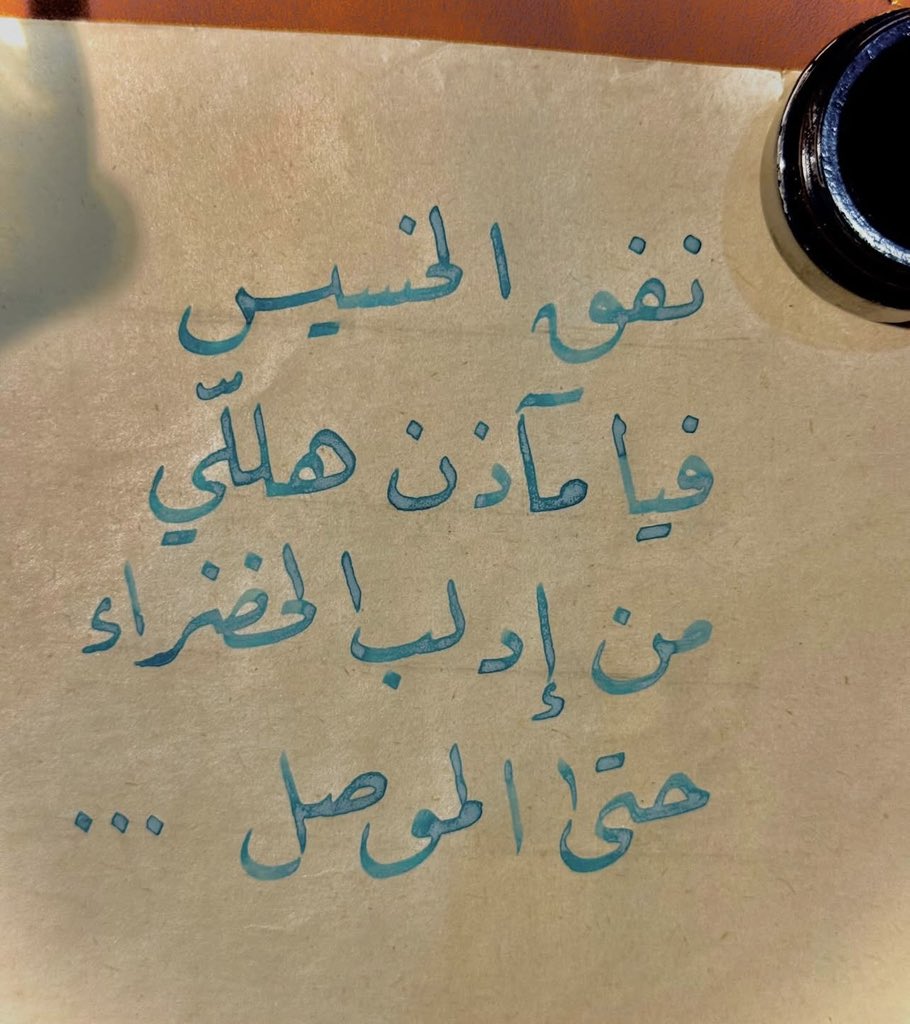 نفق الخسيس
فيا مآذن هللّي
من إدلب الخضراء
حتى الموصل ...